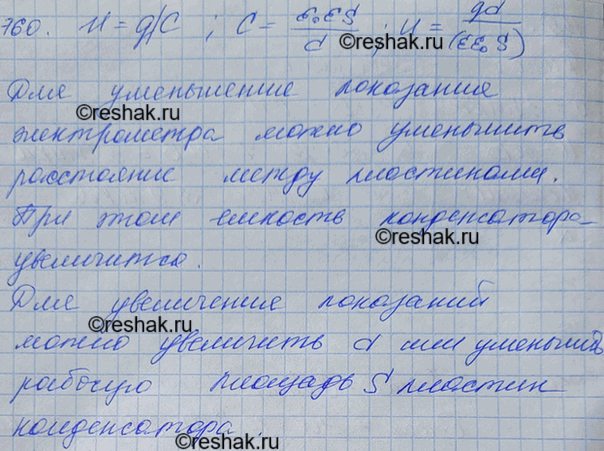 760. U = q/C ; C = ε₀εS/d ; U = qd/(εε₀S)
Для уменьшение показания
©reshak.ru
электрометра можно уменьшить
расстояние между пластинами.
При этом емкость конденсатора
©reshak.ru
увеличится.
Для увеличение показаний
©reshak.ru
можно увеличить d или уменьшить
рабочую площадь S пластин
©reshak.ru
конденсатора.
©reshak.ru